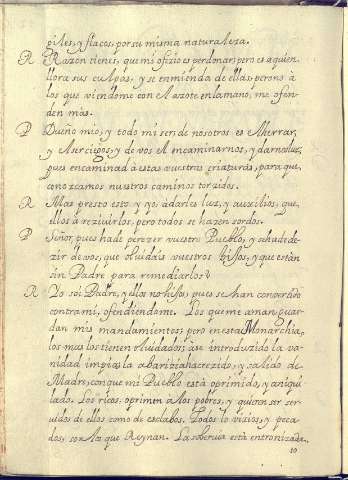 giles, y flacos, por su misma naturalesa.
R Razon tienes, que mi ofizio es perdonar; pero es a quien
llora sus culpas, y se enmienda de ellas, pero no a
los que viendome con Azote en la mano, me ofen-
den mas.
P Dueño mio, y todo mi ser, de nosotros es el herrar,
y el ser ciegos, y de vos el encaminarnos, y darnos luz,
pues encaminad à estas vuestras criaturas, para que,
conozcamos nuestros caminos torzidos.
R Mas presto estoy yo, à darles luz, y auxilios, que,
ellos à rezivirlos, pero todos se hazen sordos.
P Señor, pues ha de perezer vuestro Pueblo, y se ha de de-
zir de vos, que olvidais vuestros hijos, y que estàn
sin Padre para remediarlos?
R Yo soi Padre, y ellos no hijos, pues se han convertido
contra mi, ofendiendome. Los que me aman, guar-
dan mis mandamientos, pero en esta Monarchia,
los mas los tienen olvidados; à se introduzido la va-
nidad impia, la abarizia ha crezido, y salido de
Madre, con que mi Pueblo està oprimido, y aniqui-
lado. Los ricos, oprimen à los pobres, y quieren ser ser-
vidos de ellos como de esclabos. Todos los vizios, y peca-
dos, son los que Reynan. La soberuia està entronizada,